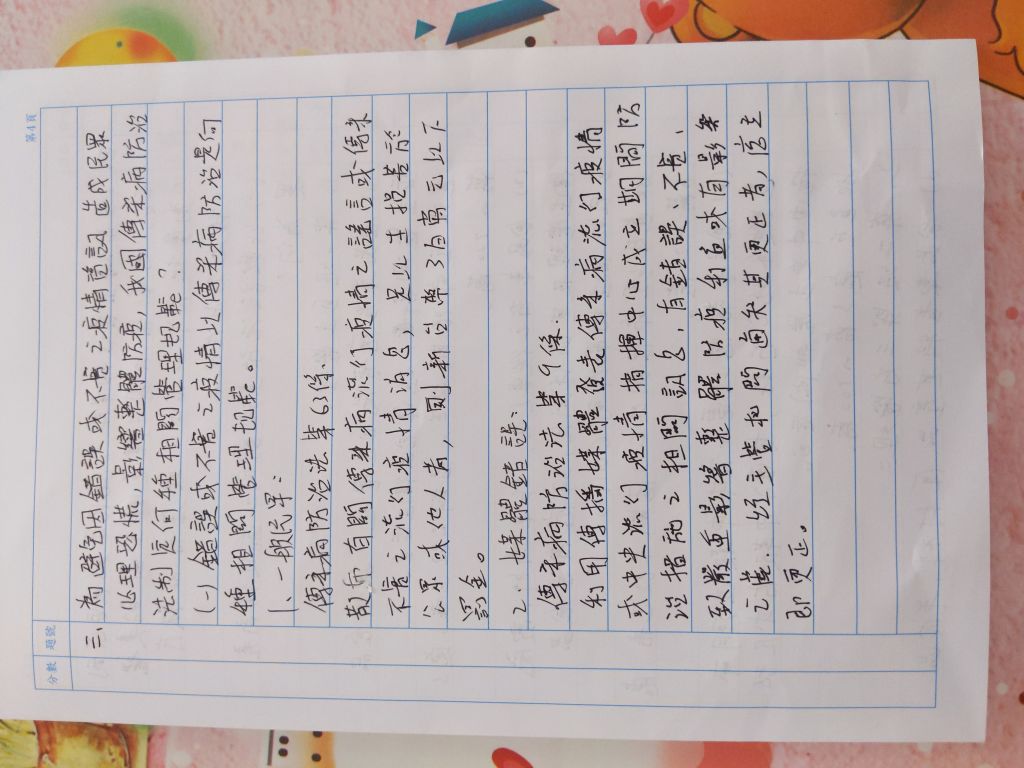 第4頁
分數 題號
三、為避免因錯誤或不實之疫情資訊造成民眾
心理恐慌,影響整體防疫,我國傳染病防治
法制定何種相關管理規範?
(一)錯誤或不實之疫情以傳染病防治是何
種相關管理規範。
1、一般民眾:
傳染病防治法第63條.
散佈有關傳染病流行疫情之謠言或傳染
不實之流行疫情消息,足以生損害於
公眾或他人者,科新台幣3百萬元以下
罰金。
2、媒體錯誤.
傳染病防治法第9條
利用傳播媒體發表傳染病流行疫情
或中央流行疫情指揮中心成立期間防
治措施之相關訊息,有錯誤、不實、
致嚴重影響整體防疫利益或有影響
之虞.經主管機關通知其更正者,應立
即更正。